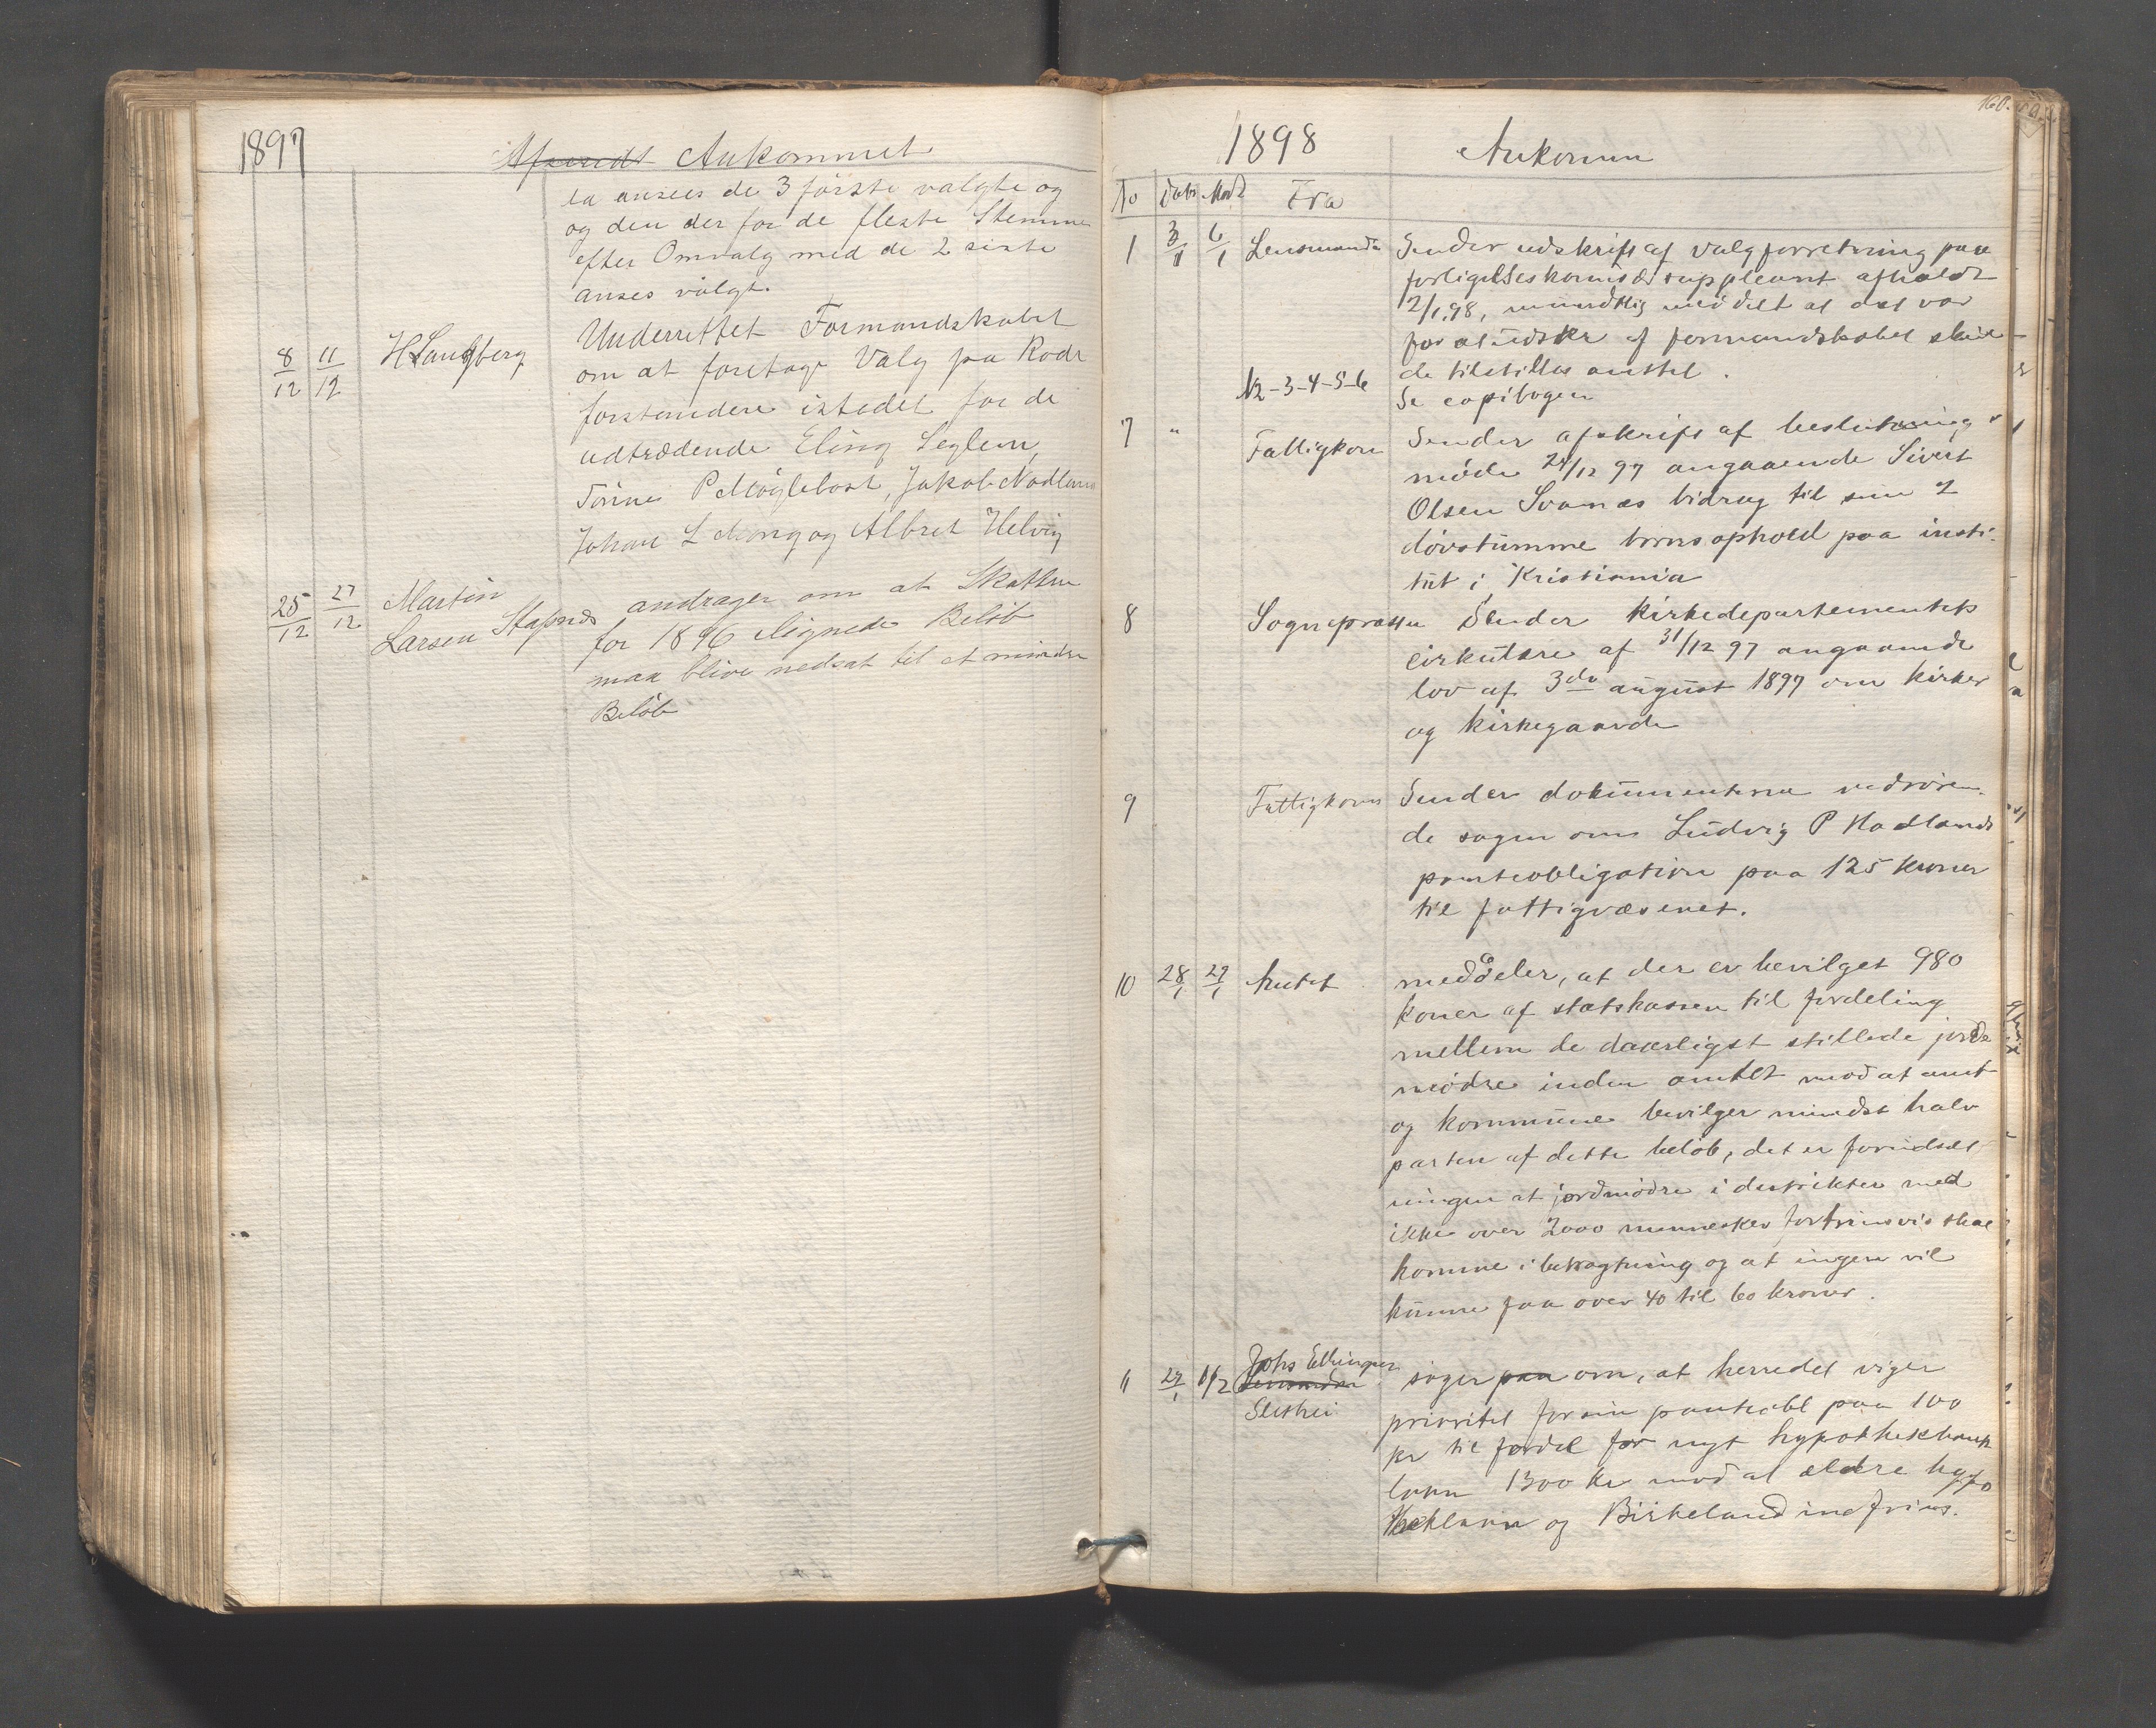 1897
Afsendt Ankommet
la ansees de 3 første valgte og
og den der for de fleste Stemme
efter Omvalg med de 2 siste
anses valgt.
8/12 11/12 H Sandberg Underrettet Formandskabet
om at foretage Valg på Rode
forstandere istedet for de
udtrædende Eling Seglem,
Tønnes P Møglebost, Jakob Nodland
Johan L Mong og Albret Helvig
25/12 27/12 Martin
Larsen Stapnes andrager om at Skatten
for 1896 lignede Beløb
maa blive nedsat til et mindre
Beløb
160.
1898
Ankomm
No Dato Mod Fra
1 3/1 6/1 Lensmanden Sender udskrift af valgforretning paa
forligelseskomis suppleant afholdt
2/1 98, mundtlig meddelt at det var
for at udskr af formandskabet skul
de tilstilles amtet.
N2-3-4-5-6 Se copibogen
7 " Fattigkom Sender afskrift af beslutning
møde 24/12 97 angaaende Sivert
Olsen Svanæs bidrag til sine 2
døvstumme børns ophold paa insti-
tut i Kristiania
8 Sognepræsten Sender Kirkedepartementets
cirkulære af 31/12 97 angaaende
lov af 3die august 1897 om kirker
og kirkegaarde
9 Fattigkom Sender dokumenterne vedrøren-
de sagen om Ludvig P Hadlands
panteobligation paa 125 kroner
til fattigvæsenet.
10 28/1 29/1 Amtet meddeler, at der er bevilget 980
koner af statskassen til fordeling
mellem de daarligst stillede jorde
mødre inden amtet mod at amt
og kommune bevilger mindst halv
parten af dette beløb, det er forudsæt
ningen at jordmødre i distrikter med
ikke over 2000 mennesker fortrinsvis skal
komme i betragtning og at ingen vil
kunne faa over 40 til 60 kroner.
11 29/1 1/2 Johs Ellingsen
Lensmanden
Slethei
søger paa om, at herredet viger
prioritet for sin panteobl paa 100
kr til fordel for nyt hypothekbank
laan 1300 kr mod at ældre hypo
theklaan og Birkeland indfries.